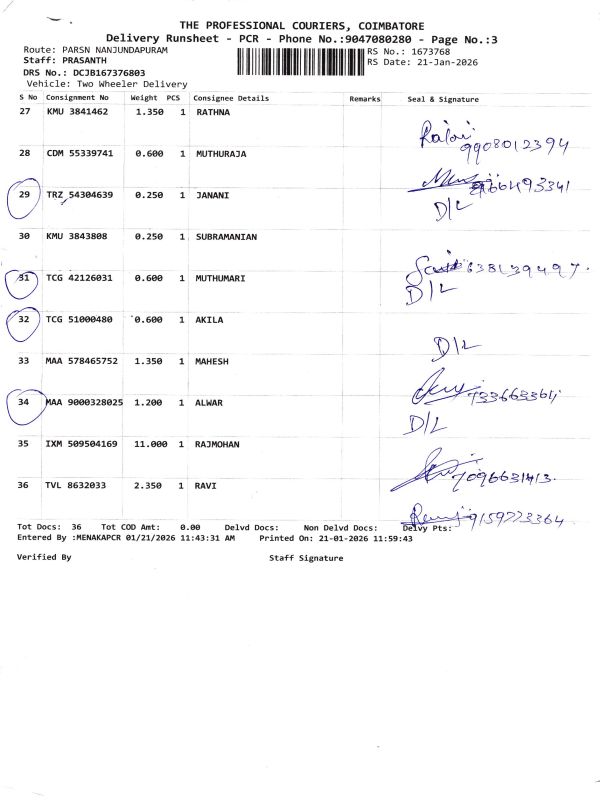 THE PROFESSIONAL COURIERS, COIMBATORE
Delivery Runsheet - PCR - Phone No.:9047080280 - Page No.:3
Route: PARSN NANJUNDAPURAM
RS No.: 1673768
Staff: PRASANTH
RS Date: 21-Jan-2026
DRS No.: DCJB167376803
Vehicle: Two Wheeler Delivery
S No Consignment No Weight PCS Consignee Details Remarks Seal & Signature
27 KMU 3841462 1.350 1 RATHNA
9908012394
28 CDM 55339741 0.600 1 MUTHURAJA
29 TRZ 54304639 0.250 1 JANANI
D/L
30 KMU 3843808 0.250 1 SUBRAMANIAN
31 TCG 42126031 0.600 1 MUTHUMARI
D/L
32 TCG 51000480 0.600 1 AKILA
D/L
33 MAA 578465752 1.350 1 MAHESH
34 MAA 9000328025 1.200 1 ALWAR
D/L
35 IXM 509504169 11.000 1 RAJMOHAN
7096631413.
36 TVL 8632033 2.350 1 RAVI
9159773364
Tot Docs: 36 Tot COD Amt: 0.00 Delvd Docs: Non Delvd Docs: Delvy Pts:
Entered By :MENAKAPCR 01/21/2026 11:43:31 AM Printed On: 21-01-2026 11:59:43
Verified By Staff Signature